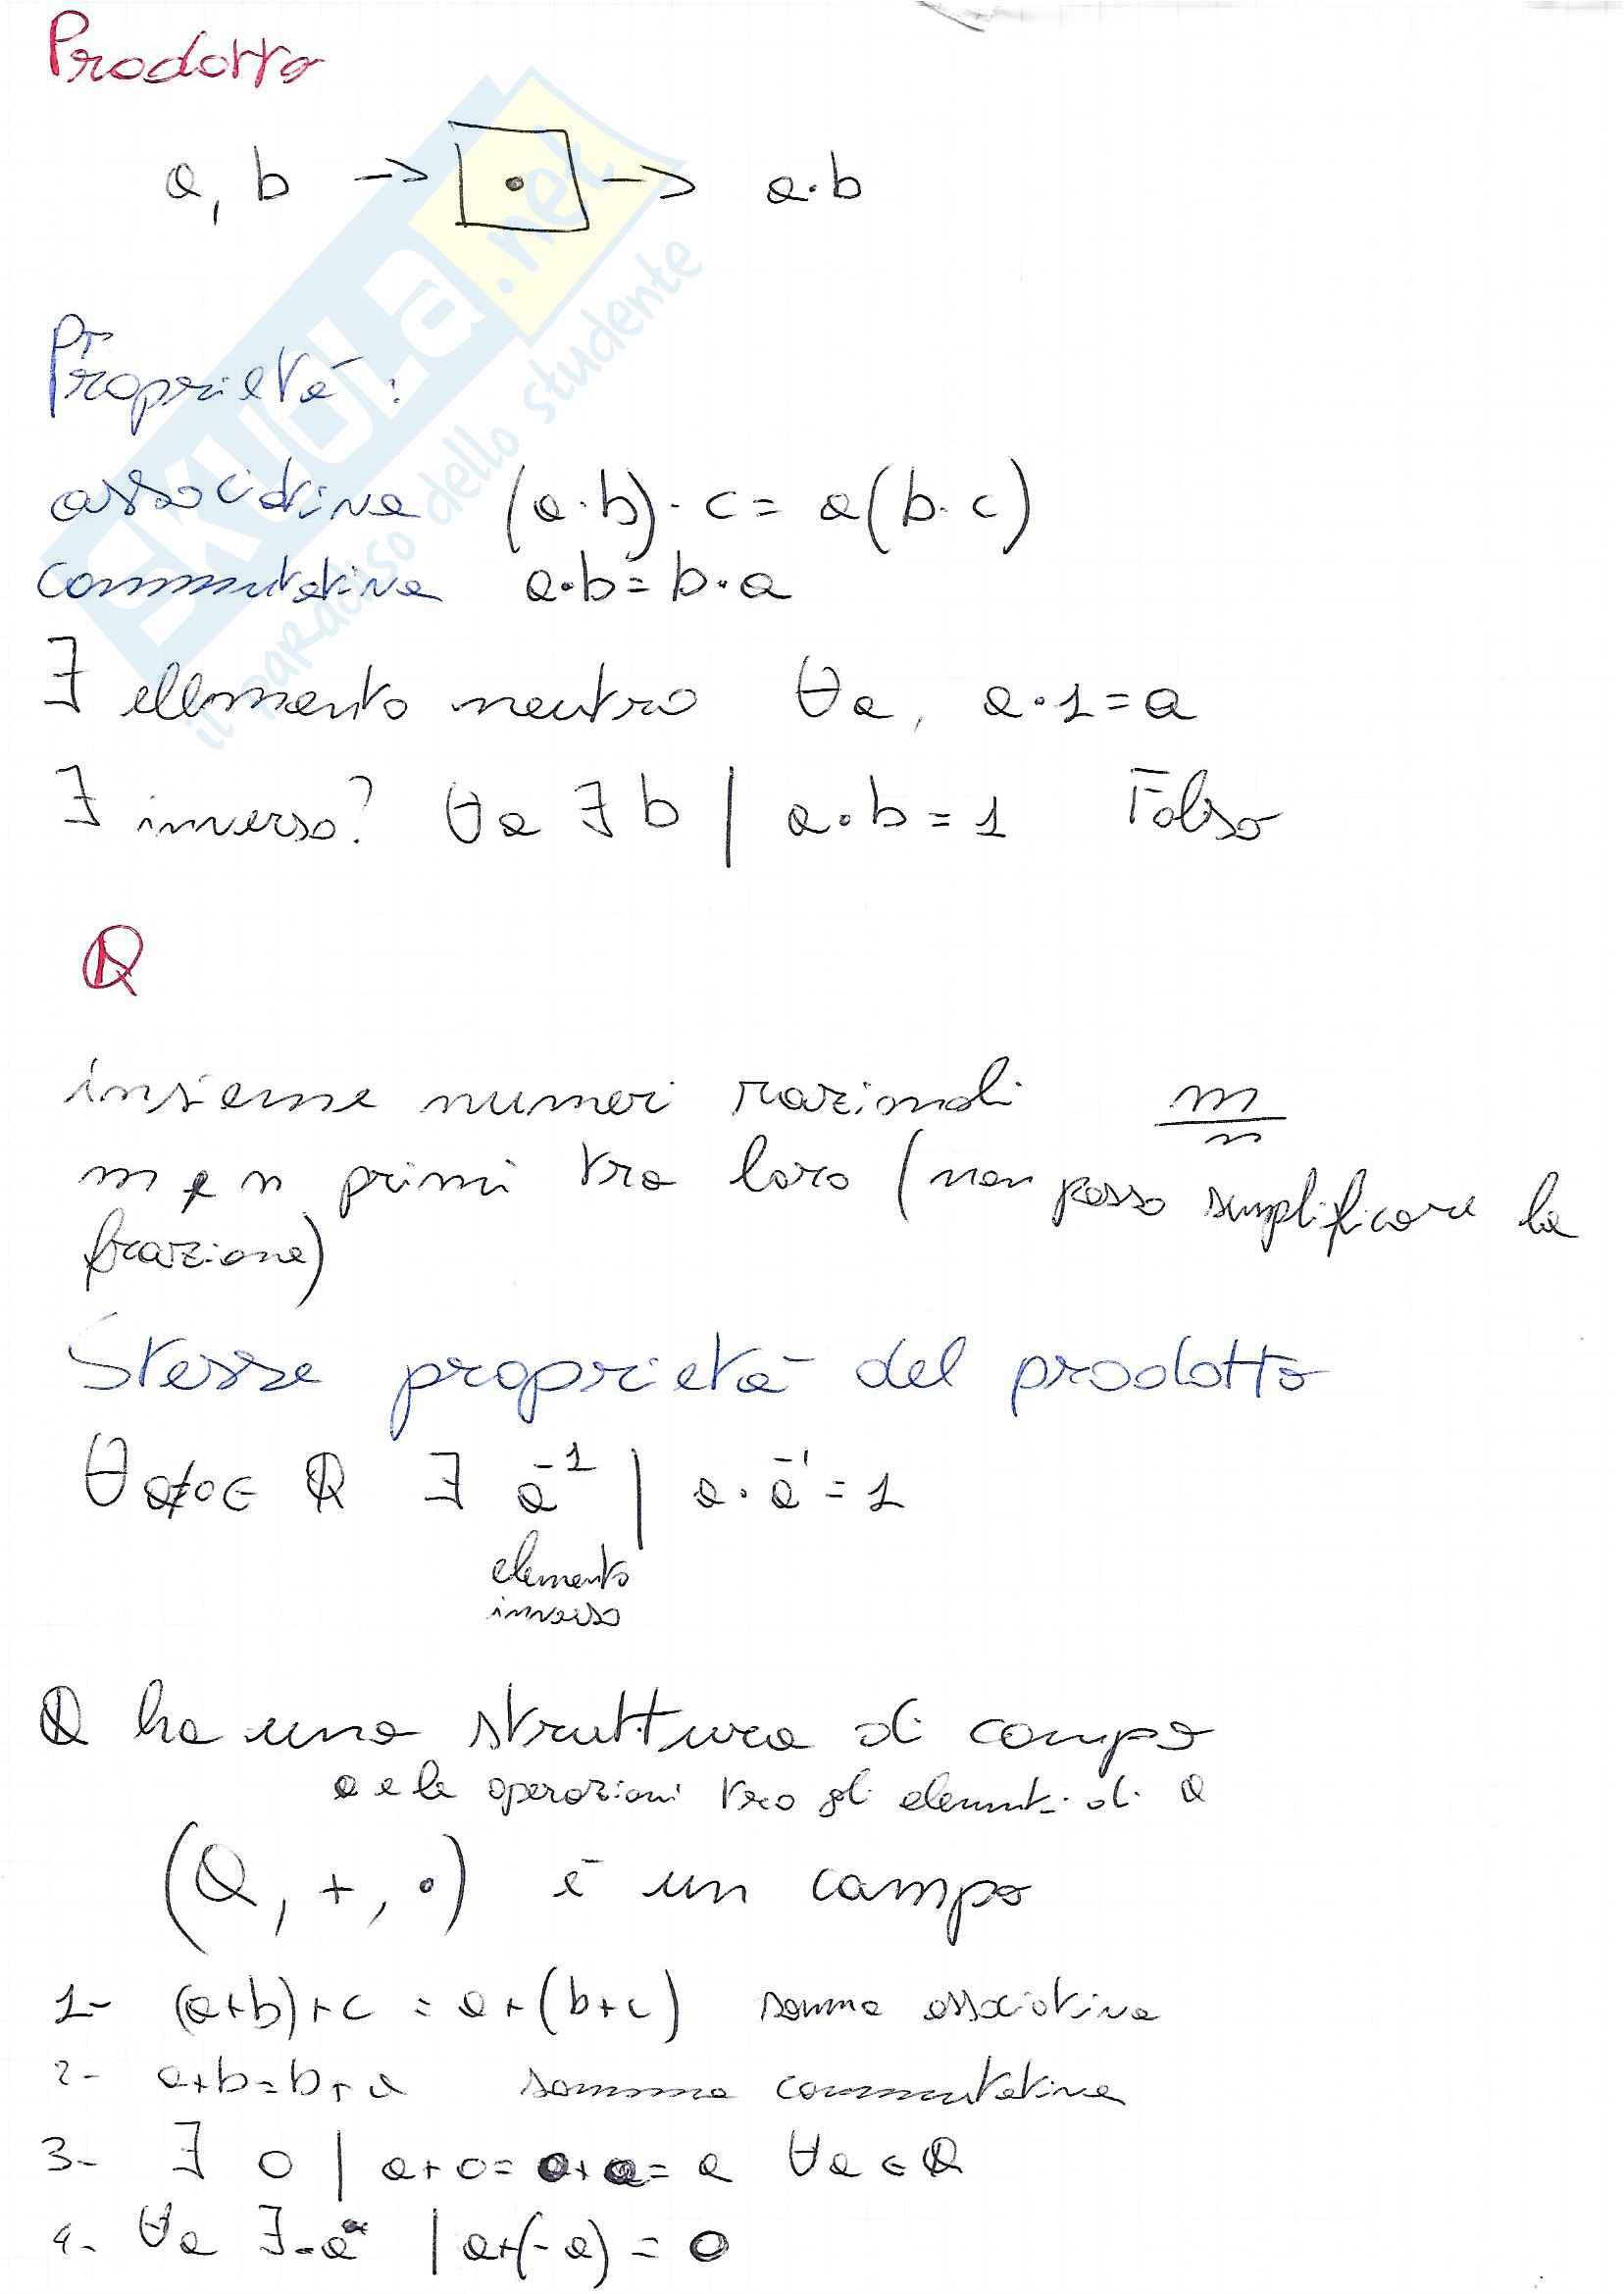 Prodotto
a, b -> · -> a·b
Pr
Proprietà:
associativa (a·b)·c = a(b·c)
commutativa a·b = b·a
∃ ellemento neutro ∀a, a·1=a
∃ inverso? ∀a ∃ b | a·b = 1 Falso
Q
insieme numeri razionali m/n
m e n primi tra loro (non posso semplificare la
frazione)
Stesse proprietà del prodotto
∀a≠0∈ Q ∃ a⁻¹ | a·a⁻¹=1
elemento
inverso
Q ha una struttura di campo
a e le operazioni tra gli elementi di Q
(Q, +, ·) è un campo
1- (a+b)+c = a+(b+c) somma associativa
2- a+b=b+a somma commutativa
3- ∃ 0 | a+0= 0+a= a ∀a∈Q
4- ∀a ∃-a | a+(-a) = 0
SKUOLA.net
il paradiso dello studente